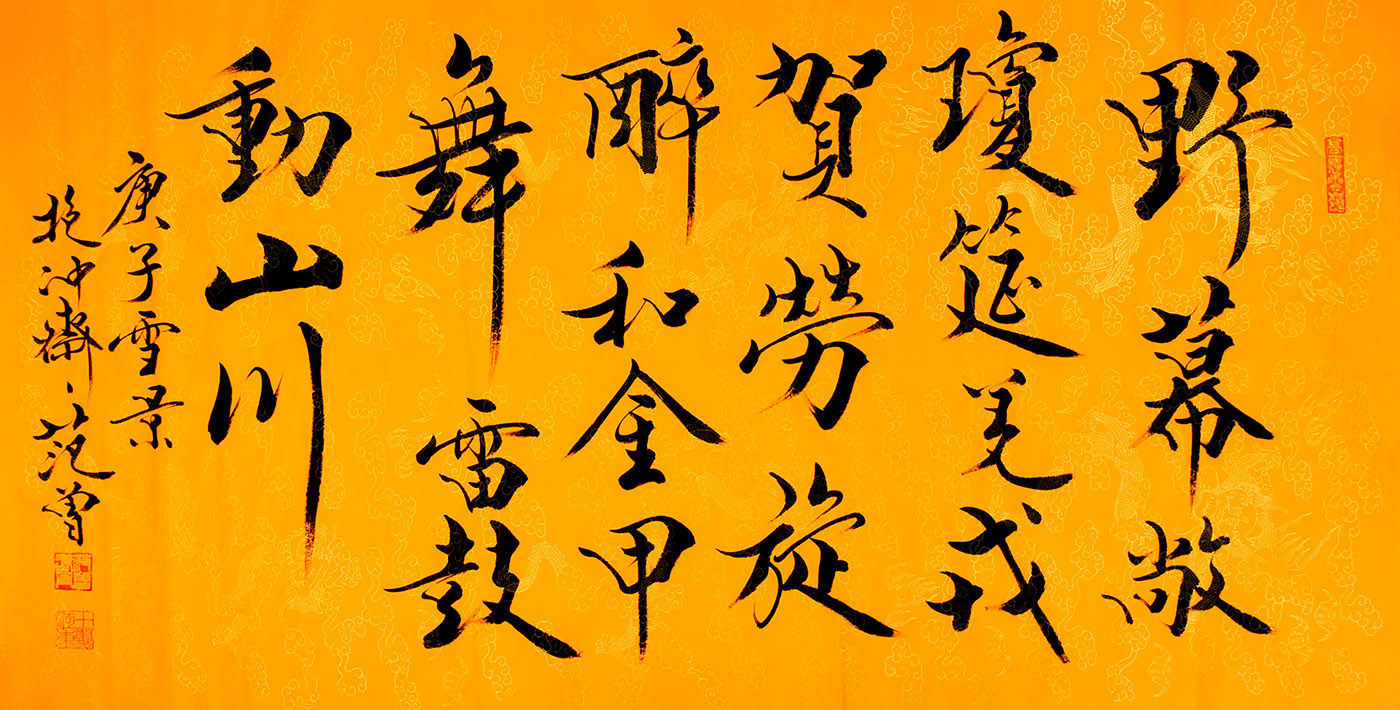 野幕敞
瓊筵羌戎
賀勞旋
醉和金甲
舞雷鼓
動山川
庚子雪景
抱冲齋范曾